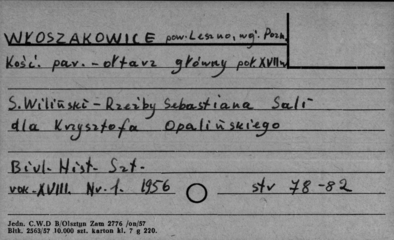 WŁOSZAKOWICE pow. Leszno, woj. Pozn.
Kość. par. - ołtarz główny poł. XVII w
S. Wiliński - Rzeźby Sebastiana Sali
dla Krzysztofa Opalińskiego
Biul. Hist. Szt.
rok. XVIII. Nr. 1. 1956 str 78-82
Jedn. C.W.D B/Olsztyn Zam 2776 /on/57
Bltk. 2563/57 10.000 szt. karton kl. 7 g 220.